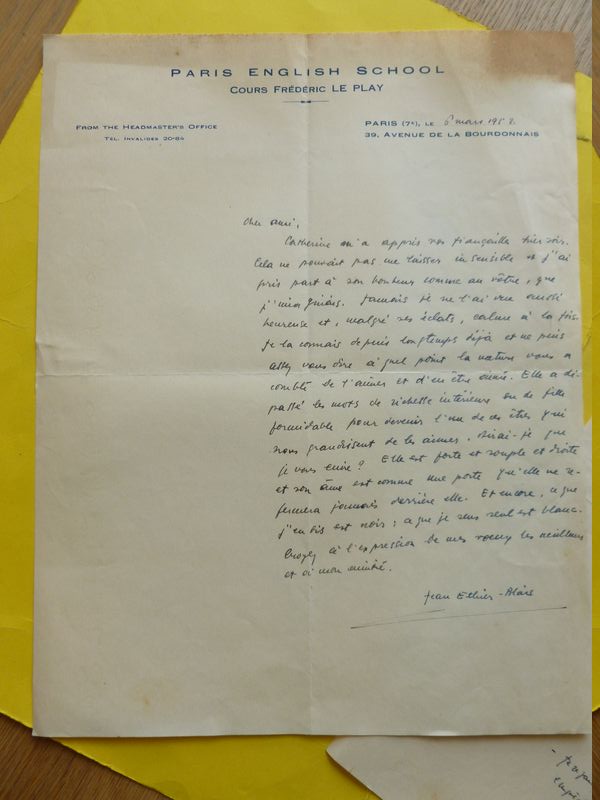 PARIS ENGLISH SCHOOL
COURS FRÉDÉRIC LE PLAY
FROM THE HEADMASTER'S OFFICE
TEL. INVALIDES 20-84
PARIS (7e), LE 6 mars 1952.
39, AVENUE DE LA BOURDONNAIS
Cher ami,
Catherine m'a appris vos fiançailles hier soir.
Cela ne pouvait pas me laisser insensible et j'ai
pris part à son bonheur comme au vôtre, que
j'imaginais. Jamais je ne l'ai vue aussi
heureuse et, malgré ses éclats, calme à la fois.
Je la connais depuis longtemps déjà et ne puis
assez vous dire à quel point la nature vous a
comblé de l'aimer et d'en être aimé. Elle a dé-
passé les mots de richesse intérieure ou de fille
formidable pour devenir l'un de ces êtres qui
nous grandissent de les aimer. Dirai-je que
je vous envie ? Elle est forte et souple et droite
et son âme est comme une porte qu'elle ne re-
fermera jamais derrière elle. Et encore, ce que
j'en dis est noir ; ce que je sens seul est blanc.
Croyez à l'expression de mes vœux les meilleurs
et à mon amitié.
Jean Ethier-Blais